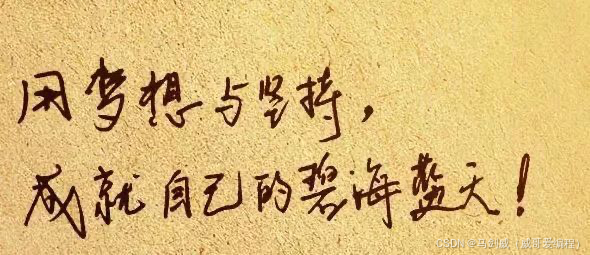 用梦想与坚持，
成就自己的碧海蓝天！
CSDN @马剑威（威哥爱编程）